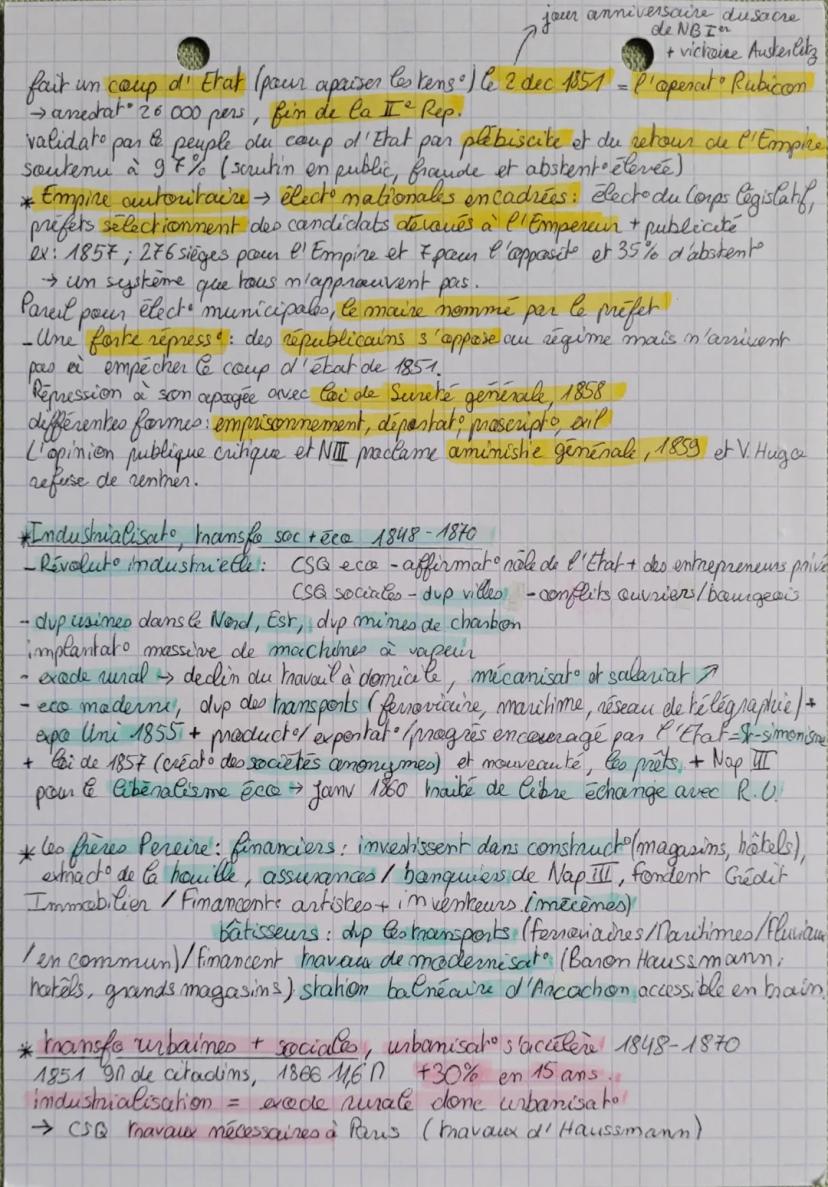 jour anniversaire du sacre
de NB Ier
+ victoire Austerlitz
fait un coup d'Etat (pour apaiser les tens°) le 2 dec 1851 = l'operat° Rubicon
→ arrestat° 26 000 pers, fin de la IIe Rep.
validat° par le peuple du coup d'Etat par plébiscite et du retour de l'Empire
soutenu à 97% (scrutin en public, fraude et abstent° élevée)
* Empire autoritaire → élect° nationales encadrées : élect° du Corps législatif,
préfets sélectionnent des candidats dévoués à l'Empereur + publicité
ex : 1857 ; 276 sièges pour l'Empire et 7 pour l'opposit° et 35% d'abstent°
→ un système que tous n'approuvent pas.
Pareil pour élect° municipales, le maire nommé par le préfet
- Une forte répress° : des républicains s'oppose au régime mais n'arrivent
pas à empêcher le coup d'état de 1851.
Répression à son apogée avec loi de Sureté générale, 1858
différentes formes : emprisonnement, déportat°, proscript°, exil
L'opinion publique critique et NIII proclame aministie générale, 1859 et V. Hugo
refuse de rentrer.
* Industrialisat°, transfo soc + éco 1848 - 1870
- Révolut° industrielle : CSQ eco - affirmat° rôle de l'Etat + des entrepreneurs privé
CSQ sociales - dvp villes - conflits ouvriers/bourgeois
- dvp usines dans le Nord, Est, dvp mines de charbon
implantat° massive de machines à vapeur
- exode rural → declin du travail à domicile, mécanisat° et salariat ↗
- eco moderne, dvp des transports (ferroviaire, maritime, réseau de télégraphie) +
expo Uni 1855 + product°/exportat°/progrès encouragé par l'Etat = St-simonisme
+ loi de 1857 (créat° des sociétés anonymes) et nouveauté, les prêts, + Nap III
pour le libéralisme éco → janv 1860 traité de libre échange avec R.U.
* Les frères Pereire : financiers : investissent dans construct° (magasins, hôtels),
extract° de la houille, assurances / banquiers de Nap III, fondent Crédit
Immobilier / Financent artistes + inventeurs (mécènes)
bâtisseurs : dvp les transports (ferroviaires/Maritimes/Fluviaux
/en commun)/financent travaux de modernisat° (Baron Haussmann,
hotêls, grands magasins) station balnéaire d'Arcachon, accessible en train.
* transfo urbaines + sociales, urbanisat° s'accélère 1848-1870
1851 9M de citadins, 1866 11,6 M +30% en 15 ans.
industrialisation = exode rurale donc urbanisat°
→ CSQ travaux nécessaires à Paris (travaux d'Haussmann)